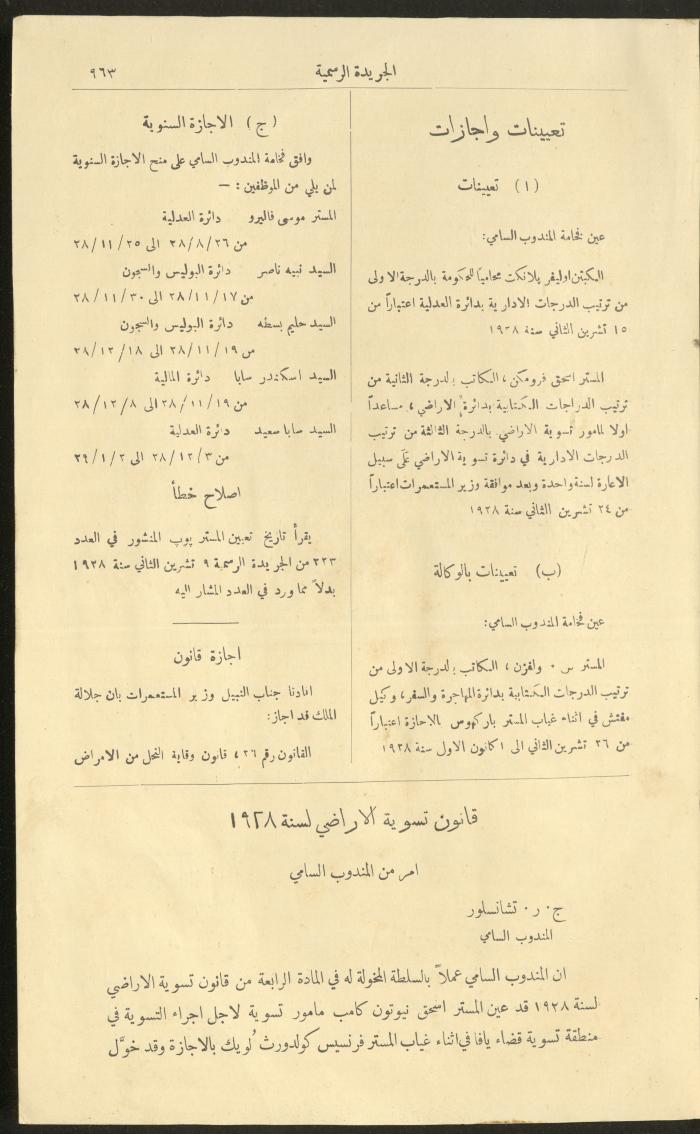 الجريدة الرسمية
٩٦٣
تعيينات واجازات
(ا) تعيينات
عين فخامة المندوب السامي:
الكبتن اوليفر پلانكت محامياً للحكومة بالدرجة الاولى
من ترتيب الدرجات الادارية بدائرة العدلية اعتباراً من
١٥ تشرين الثاني سنة ١٩٢٨
المستر اسحق فرومكن، الكاتب بالدرجة الثانية من
ترتيب الدراجات الكتابية بدائرة الاراضي، مساعداً
اولا لمامور تسوية الاراضي بالدرجة الثالثة من ترتيب
الدرجات الادارية في دائرة تسوية الاراضي على سبيل
الاعارة لسنة واحدة وبعد موافقة وزير المستعمرات اعتباراً
من ٢٤ تشرين الثاني سنة ١٩٢٨
(ب) تعيينات بالوكالة
عين فخامة المندوب السامي:
المستر س٠ ولفزن، الكاتب بالدرجة الاولى من
ترتيب الدرجات الكتابية بدائرة المهاجرة والسفر، وكيل
مفتش في اثناء غياب المستر باركهوس بالاجازة اعتباراً
من ٢٦ تشرين الثاني الى ١ كانون الاول سنة ١٩٢٨
(ج) الاجازة السنوية
وافق فخامة المندوب السامي على منح الاجازة السنوية
لمن يلي من الموظفين: —
المستر موسى فاليرو دائرة العدلية
من ٢٨/٨/٢٦ الى ٢٨/١١/٢٥
السيد نبيه ناصر دائرة البوليس والسجون
من ٢٨/١١/١٧ الى ٢٨/١١/٣٠
السيد حليم بسطه دائرة البوليس والسجون
من ٢٨/١١/١٩ الى ٢٨/١٢/١٨
السيد اسكندر سابا دائرة المالية
من ٢٨/١١/١٩ الى ٢٨/١٢/٨
السيد سابا سعيد دائرة العدلية
من ٢٨/١٢/٣ الى ٢٩/١/٢
اصلاح خطأ
يقرأ تاريخ تعيين المستر پوپ المنشور في العدد
٢٢٣ من الجريدة الرسمية ٩ تشرين الثاني سنة ١٩٢٨
بدلاً مما ورد في العدد المشار اليه
اجازة قانون
افادنا جناب النبيل وزير المستعمرات بان جلالة
الملك قد اجاز:
القانون رقم ٢٦، قانون وقاية النحل من الامراض
قانون تسوية الاراضي لسنة ١٩٢٨
امر من المندوب السامي
ج٠ ر٠ تشانسلور
المندوب السامي
ان المندوب السامي عملاً بالسلطة المخولة له في المادة الرابعة من قانون تسوية الاراضي
لسنة ١٩٢٨ قد عين المستر اسحق نيوتون كامب مامور تسوية لاجل اجراء التسوية في
منطقة تسوية قضاء يافا في اثناء غياب المستر فرنسيس كولدورث لويك بالاجازة وقد خوّل